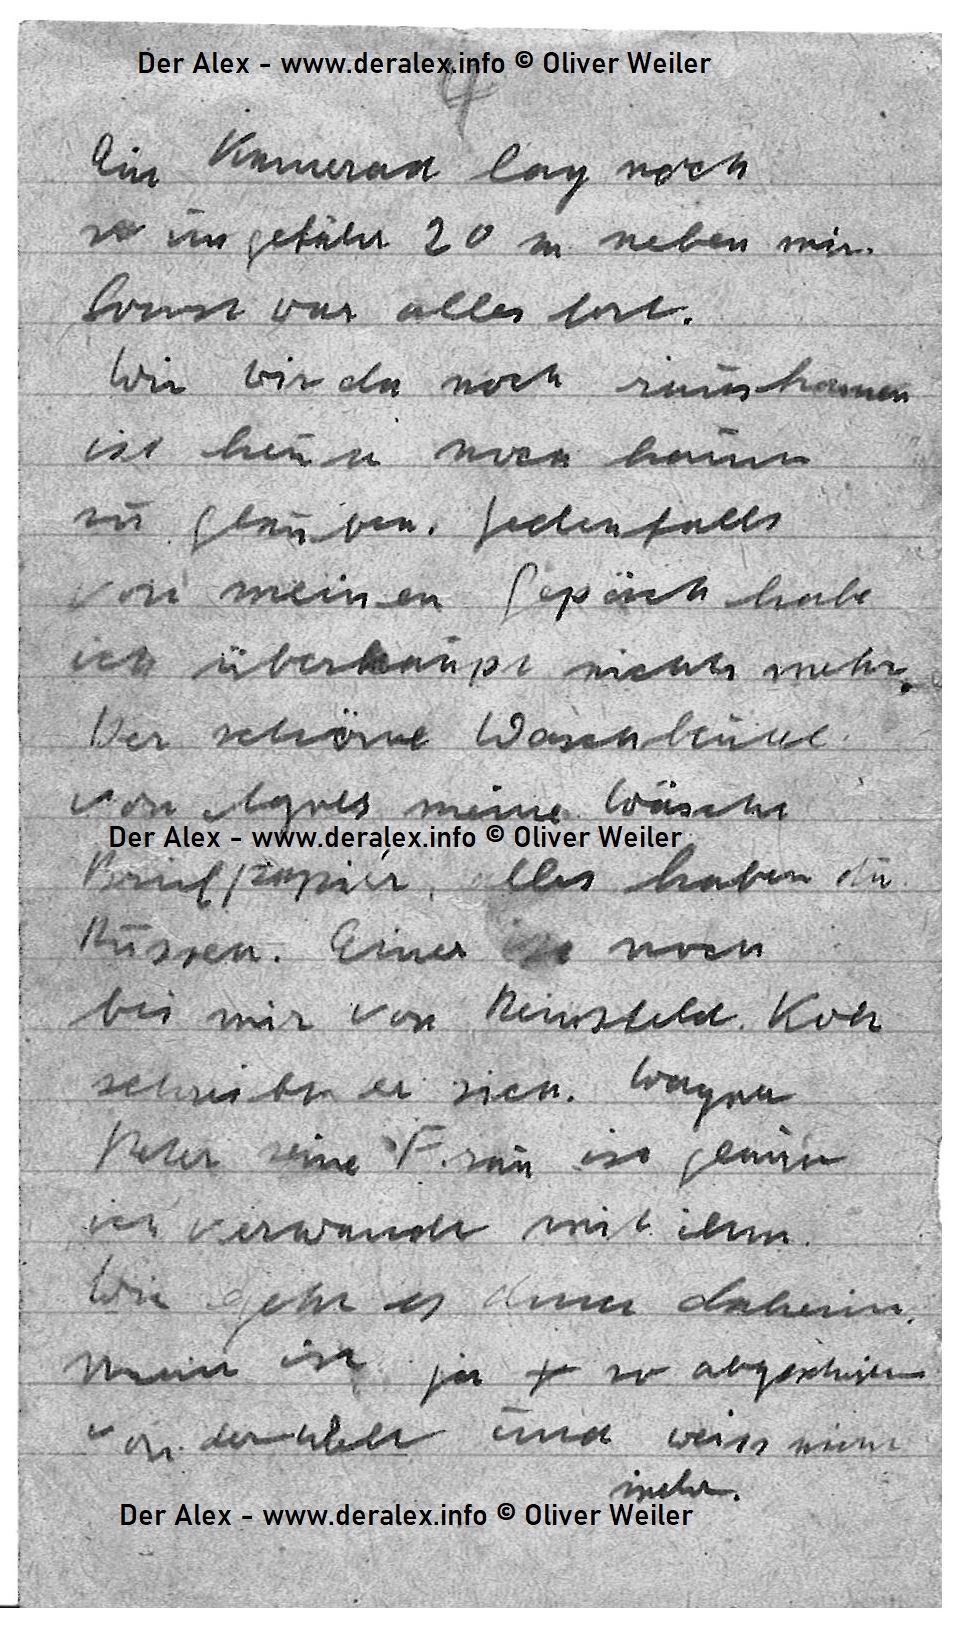 Der Alex - www.deralex.info © Oliver Weiler
4
Ein Kamerad lag noch
so ungefähr 20 m neben mir.
Sonst war alles fort.
Wie wir da noch rauskamen
ist heute noch kaum
zu glauben. Jedenfalls
von meinen Gepäck habe
ich überhaupt nichts mehr.
Der schöne Waschbeutel
von Agnes meine Wäsche
Der Alex - www.deralex.info © Oliver Weiler
Briefpapier, alles haben die
Russen. Einer ist noch
bei mir von Reinsfeld. Koch
schreibt er sich. Wagner
Peter seine Frau ist glaube
ich verwandt mit ihm.
Wie geht es denn daheim.
Man ist ja so abgeschieden
von der Welt und weiss nichts
mehr.
Der Alex - www.deralex.info © Oliver Weiler